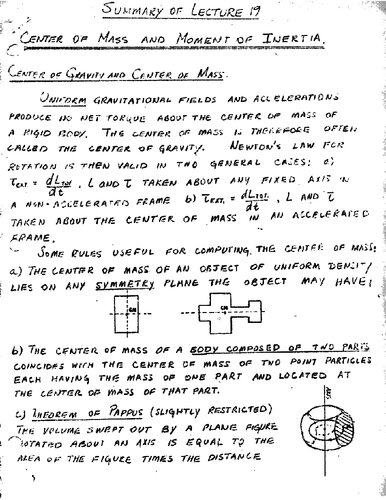 SUMMARY OF LECTURE 19
CENTER OF MASS AND MOMENT OF INERTIA.
CENTER OF GRAVITY AND CENTER OF MASS.
UNIFORM GRAVITATIONAL FIELDS AND ACCELERATIONS
PRODUCE NO NET TORQUE ABOUT THE CENTER OF MASS OF
A RIGID BODY. THE CENTER OF MASS IS THEREFORE OFTEN
CALLED THE CENTER OF GRAVITY. NEWTON'S LAW FOR
ROTATION IS THEN VALID IN TWO GENERAL CASES: a)
τEXT = dLTOT/dt, L AND τ TAKEN ABOUT ANY FIXED AXIS IN
A NON-ACCELERATED FRAME b) τEXT. = dLTOT./dt, L AND τ
TAKEN ABOUT THE CENTER OF MASS IN AN ACCELERATED
FRAME.
SOME RULES USEFUL FOR COMPUTING THE CENTER OF MASS:
a) THE CENTER OF MASS OF AN OBJECT OF UNIFORM DENSITY
LIES ON ANY SYMMETRY PLANE THE OBJECT MAY HAVE;
CM CM
b) THE CENTER OF MASS OF A BODY COMPOSED OF TWO PARTS
COINCIDES WITH THE CENTER OF MASS OF TWO POINT PARTICLES
EACH HAVING THE MASS OF ONE PART AND LOCATED AT
THE CENTER OF MASS OF THAT PART.
c) THEOREM OF PAPPUS (SLIGHTLY RESTRICTED)
THE VOLUME SWEPT OUT BY A PLANE FIGURE
ROTATED ABOUT AN AXIS IS EQUAL TO THE
AREA OF THE FIGURE TIMES THE DISTANCE